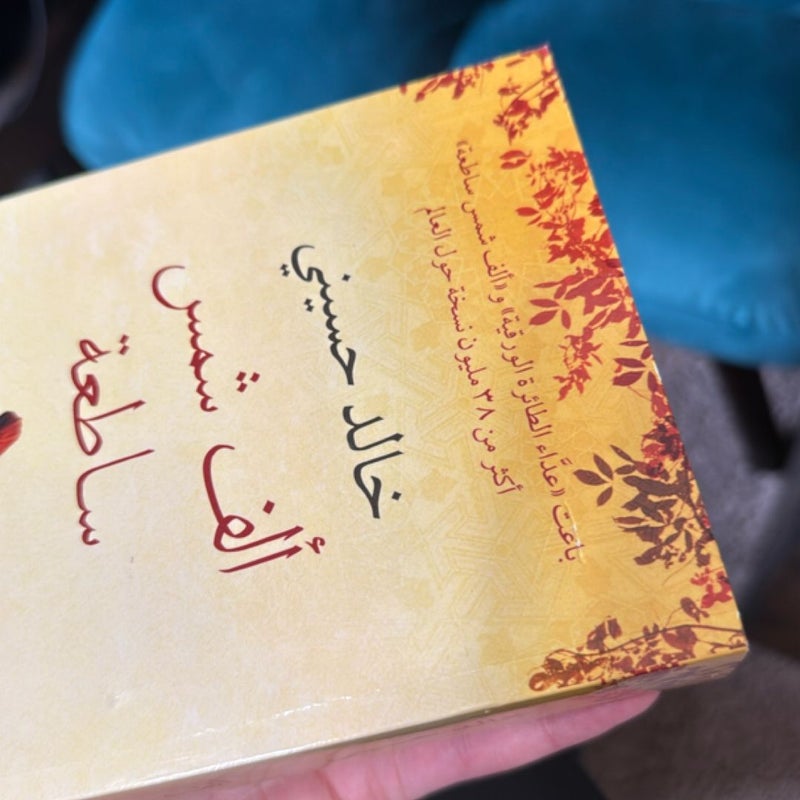 باعت «عدَّاء الطائرة الورقية» و«ألف شمس ساطعة»
أكثر من ٣٨ مليون نسخة حول العالم
خالد حسيني
ألف شمس
ساطعة